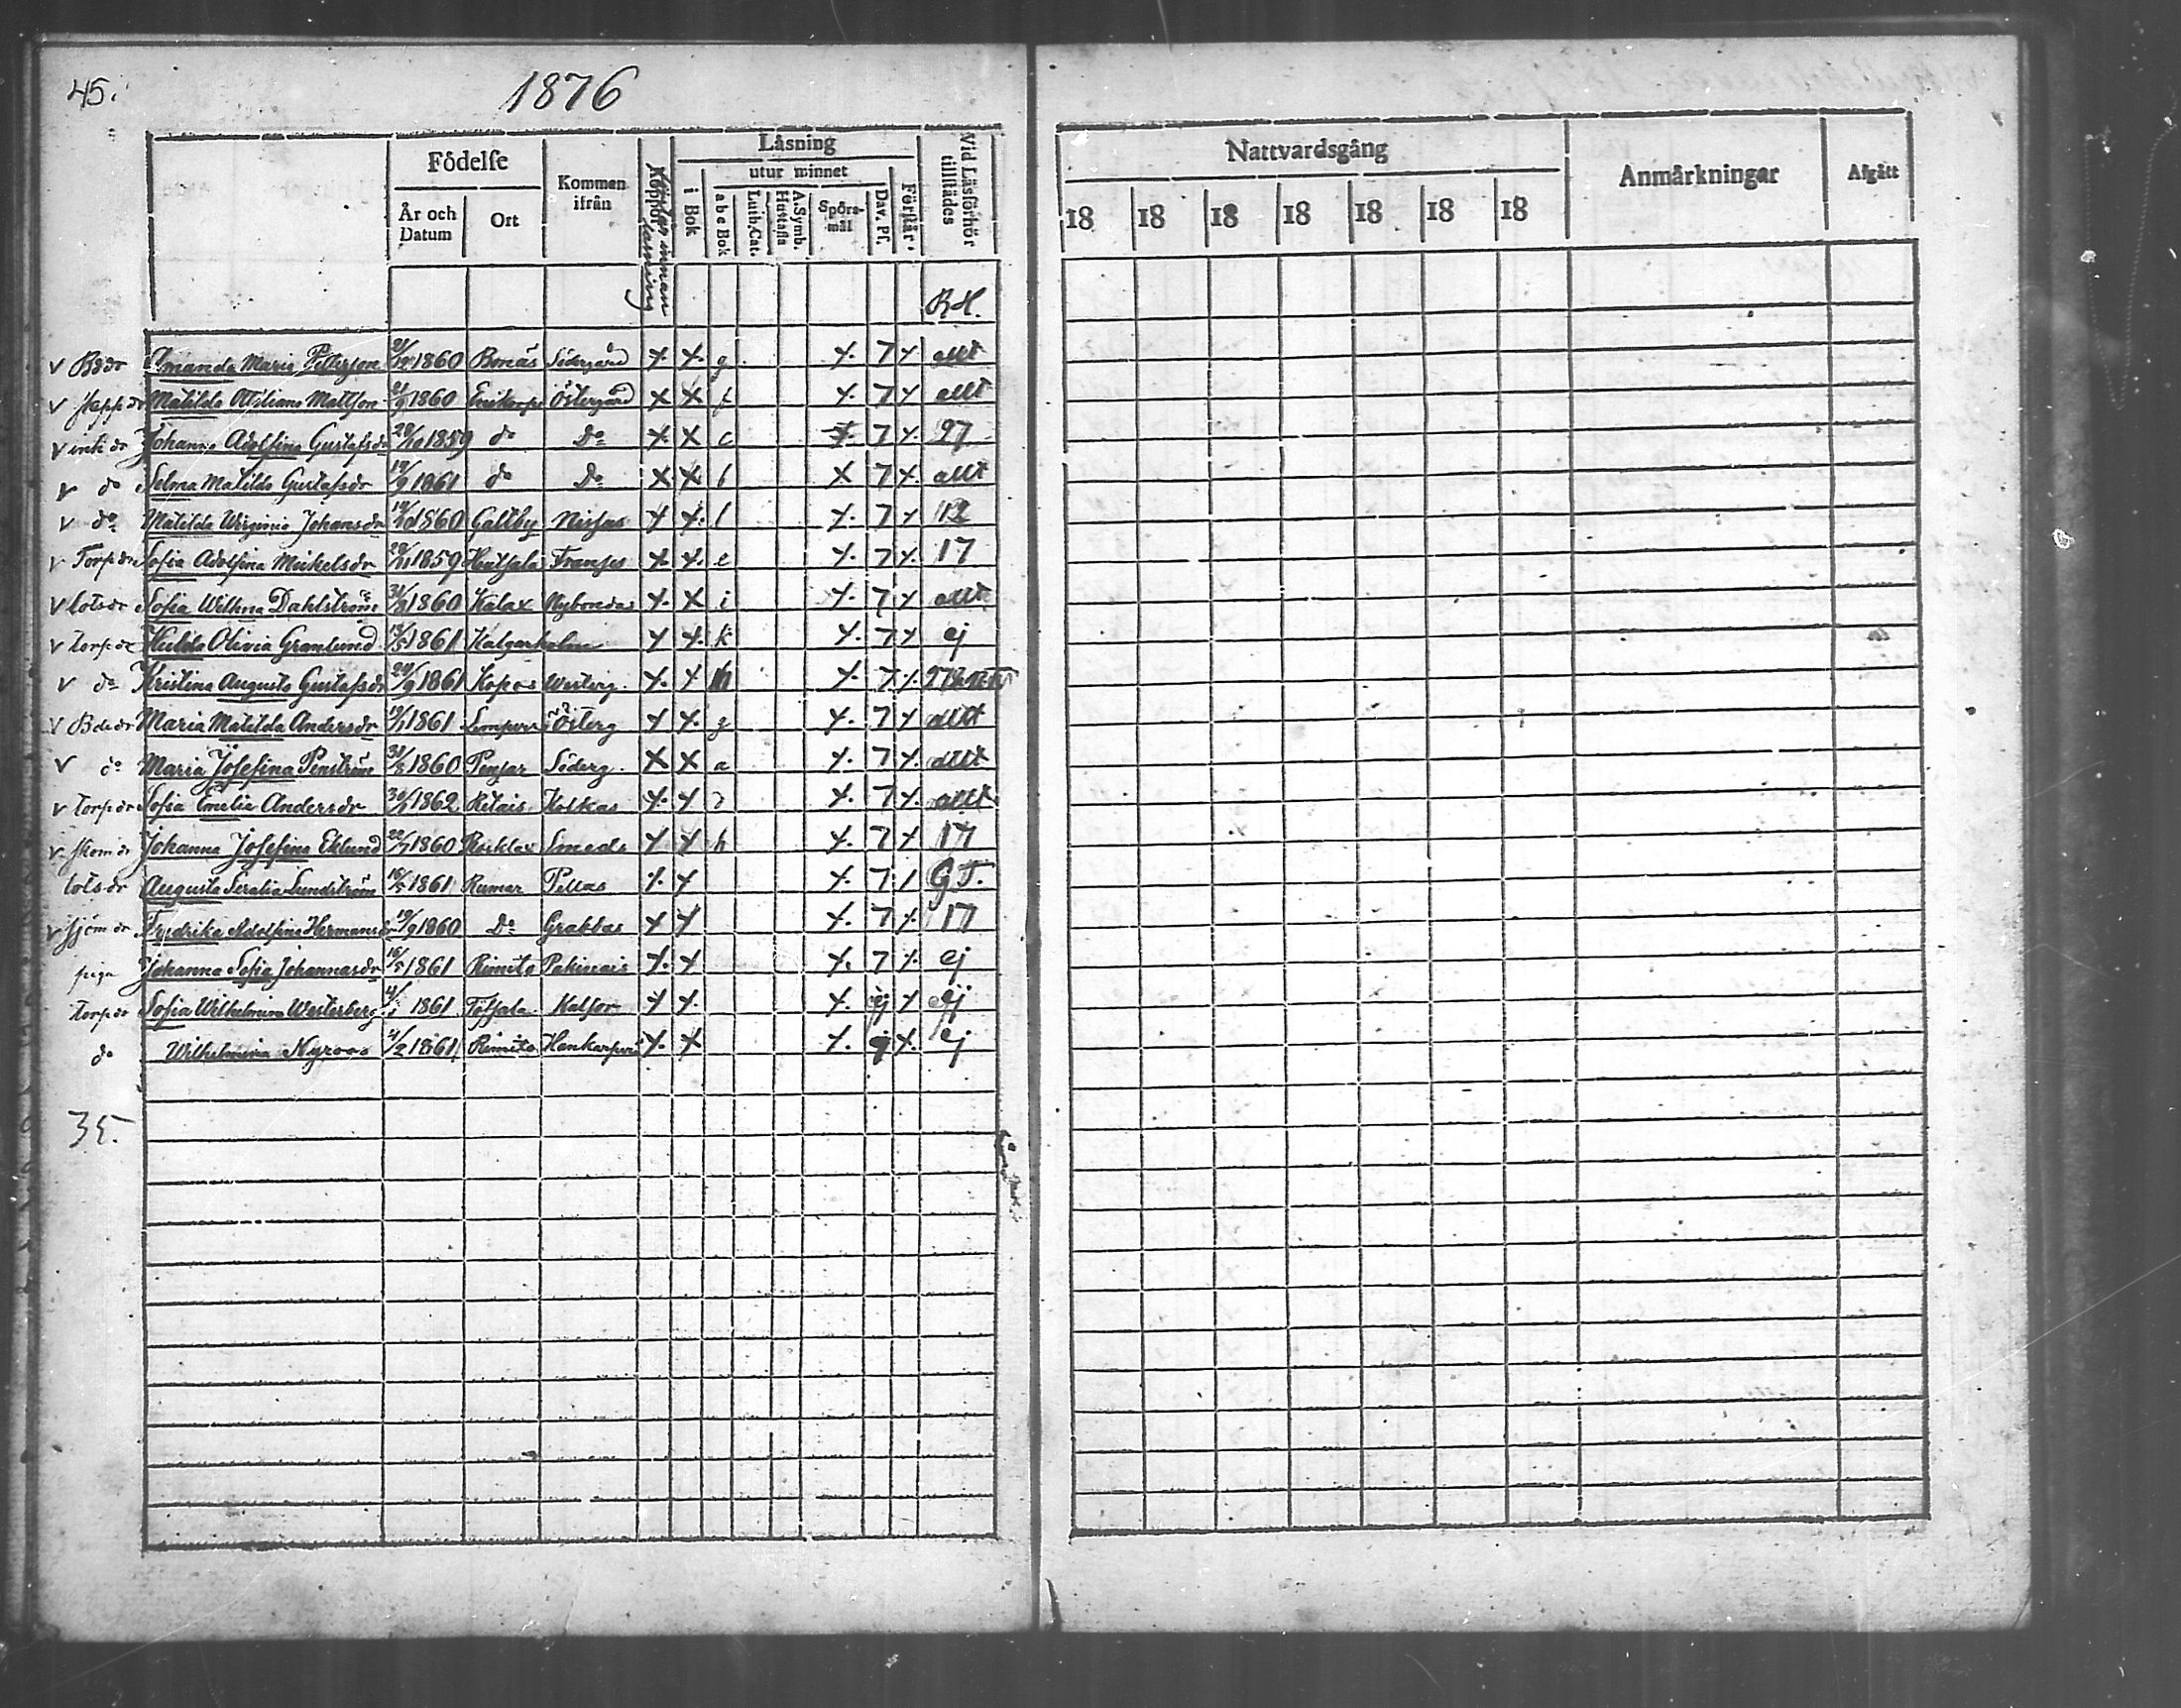 45.
1876
Födelse
Kommen ifrån
Koppor
innan
i Bok
Läsning
utur minnet
a b c Bok
Luth. Cat.
Hustafla
A. Symb.
Spörs-mål
Dav. Ps.
Förstår
Vid Läsförhör tillstädes
År och Datum
Ort
B.H.
v Bdr Amanda Maria Petterson 1860 Bonäs Södergård x x g x 7 x allt
v Matilda Mattson 1860 Östergård x x f x 7 x allt
v inh dr Johanna Adolfina Gustafsdr 28/10 1859 do Do x x c x 7 x 97
v do Selma Matilda Gustafsdr 19/9 1861 do Do x x b x 7 x allt
v do Matilda Wirginia Johansdr 1860 Galtby Nissas x x l x 7 x 12
v Torp dr Sofia Adolfina Mickelsdr 1859 Hutsala x x e x 7 x 17
v lots dr Sofia Wilhna Dahlström 31/8 1860 Kälax Nybondas x x i x 7 x allt
v torp dr Hulda Olivia Granlund 1861 Kalgarholm x x k x 7 x ej
v do Kristina Augusta Gustafsdr 24/9 1861 Kopos Westerg. x x h x 7 x
v Bdedr Maria Matilda Andersdr 1861 Österg x x g x 7 x allt
v do Maria Josefina Penström 31/8 1860 Pensar Söderg. x x a x 7 x allt
v Torp dr Sofia Emelia Andersdr 1862 Retais Kolkas x x d x 7 x allt
v skom dr Johanna Josefina Eklund 22/7 1860 Rosklax Smeds x x h x 7 x 17
lots dr Augusta Serafia Sundström 16/5 1861 Rumar Pellas x x x 7 x G.T.
v sjöm dr Fredrika Adolfina Hermansdr 19/9 1860 Do Grabbas x x x 7 x 17
piga Johanna Sofia Johannasdr 16/5 1861 Rimito Pakinais x x x 7 x ej
torp dr Sofia Wilhelmina Westerberg 1861 Töfsala Kalfor x x x ej x ej
do Wilhelmina Nyroos 4/2 1861 Rimito x x x ej x ej
35.
Nattvardsgång
Anmärkningar
Afgått
18 18 18 18 18 18 18